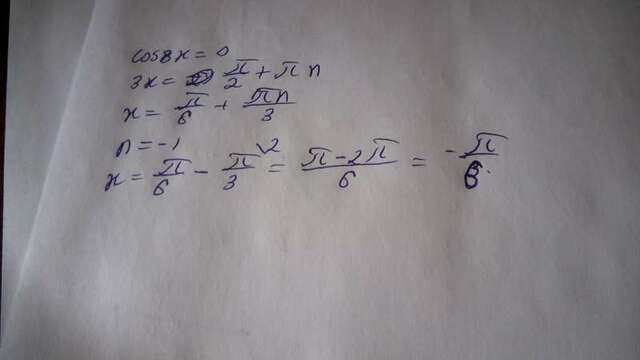 cos3x = 0
3x = π/2 + πn
x = π/6 + πn/3
n = -1
x = π/6 - π/3 \2 = π-2π/6 = -π/6